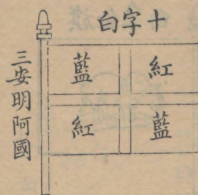 十字白
紅 藍
藍 紅
三安明阿國